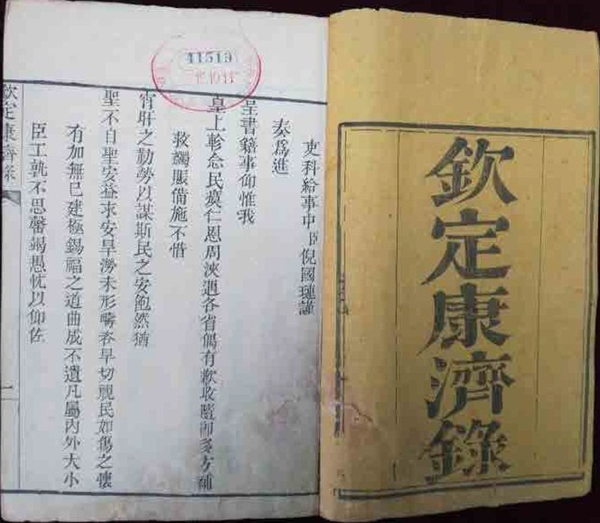 欽定康濟錄
吏科給事中臣倪國璉謹
奏爲進
呈書籍事仰惟我
皇上軫念民瘼仁恩周浹遇各省偶有歉收隨卽多方補
救蠲賑備施不惜
宵旰之勤勞以謀斯民之安飽然猶
聖不自聖安益求安旱澇未形疇咨早切視民如傷之懷
有加無已建極錫福之道曲成不遺凡屬內外大小
臣工孰不思罄竭愚忱以仰佐
欽定康濟錄
一
41519